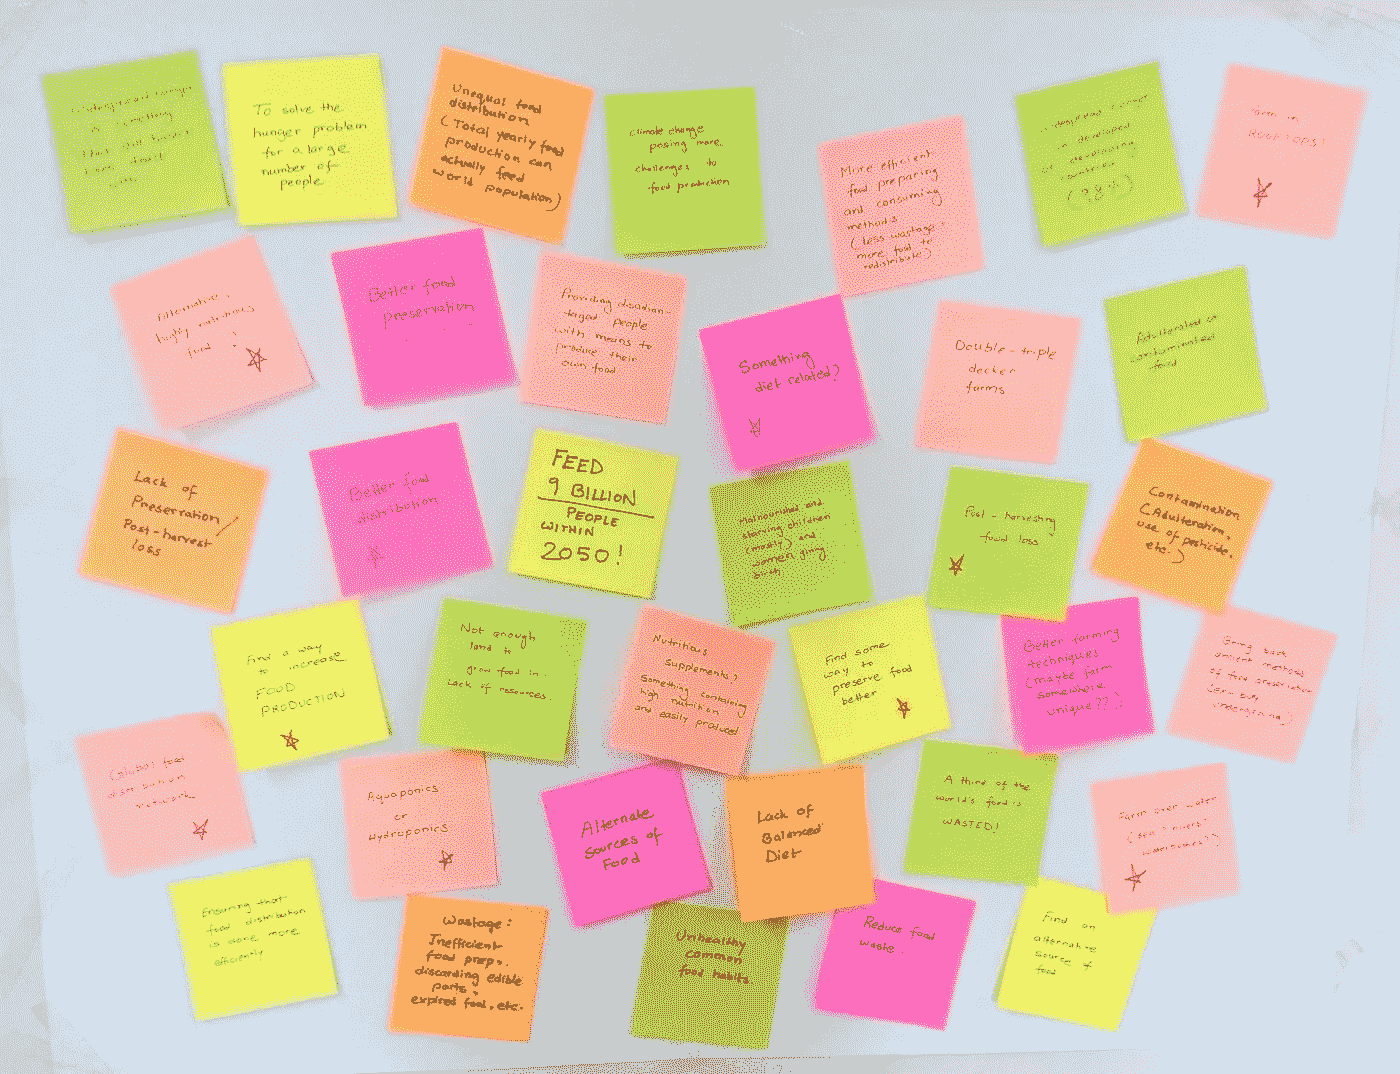 Widespread hunger
is something
that still
To solve the
hunger problem
for a large
number of
people
Unequal food
distribution
(Total yearly food
production can
actually feed
world population)
Climate change
posing more
challenges to
food production
More efficient
food preparing
and consuming
methods
(less wastage
more food to
redistribute)
in developed
or developing
countries
Farm in
ROOFTOPS!
Alternative,
highly nutritious
food
Better food
preservation
Providing disadvan-
taged people
with means to
produce their
own food
Something
diet related?
Double-triple
decker
farms
Adulterated or
contaminated
food
Lack of
Preservation/
Post-harvest
loss
Better food
distribution
FEED
9 BILLION
PEOPLE
WITHIN
2050!
Malnourished and
starving children
(mostly) and
women giving
birth
Post-harvesting
food loss
Contamination
(Adulteration,
use of pesticide,
etc.)
Find a way
to increase
FOOD
PRODUCTION
Not enough
land to
grow food in.
Lack of resources
Nutritious
supplements?
Something containing
high nutrition
and easily produced
Find some
way to
preserve food
better
Better farming
techniques
(maybe farm
somewhere
unique??)
Bring back
ancient methods
of food preservation
underground)
Global food
distribution
network
Aquaponics
or
Hydroponics
Alternate
Sources of
Food
Lack of
Balanced
Diet
A third of the
world's food is
WASTED!
Farm over water
(sea? rivers?
Ensuring that
food distribution
is done more
efficiently
Wastage:
Inefficient
food prep.,
discarding edible
parts,
expired food, etc.
Unhealthy
common
food habits.
Reduce food
waste
Find an
alternative
source of
food